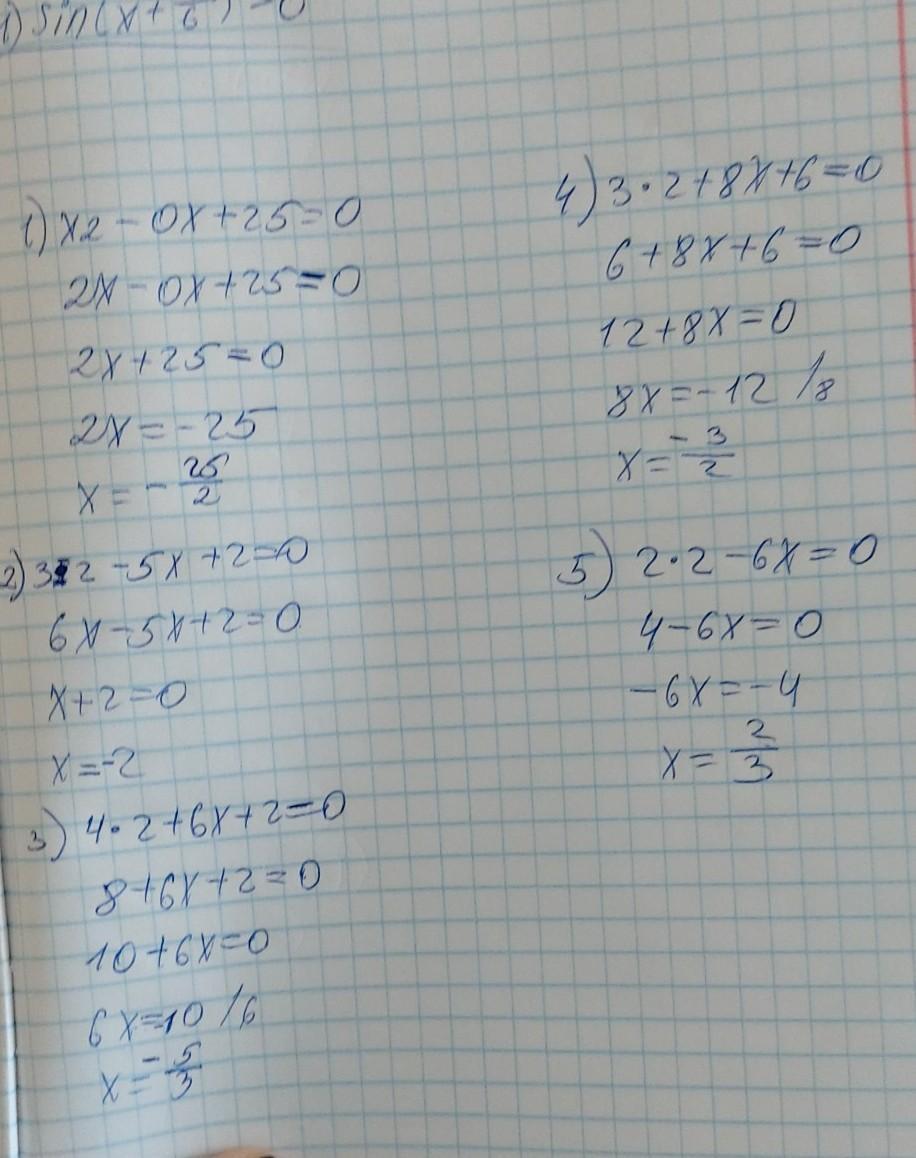 1) sin(x+
1) x2-0x+25=0
2x-0x+25=0
2x+25=0
2x=-25
x=-25/2
2) 3x2-5x+2=0
6x-5x+2=0
x+2=0
x=-2
3) 4·2+6x+2=0
8+6x+2=0
10+6x=0
6x=-10 /6
x=-5/3
4) 3·2+8x+6=0
6+8x+6=0
12+8x=0
8x=-12 /8
x=-3/2
5) 2·2-6x=0
4-6x=0
-6x=-4
x=2/3